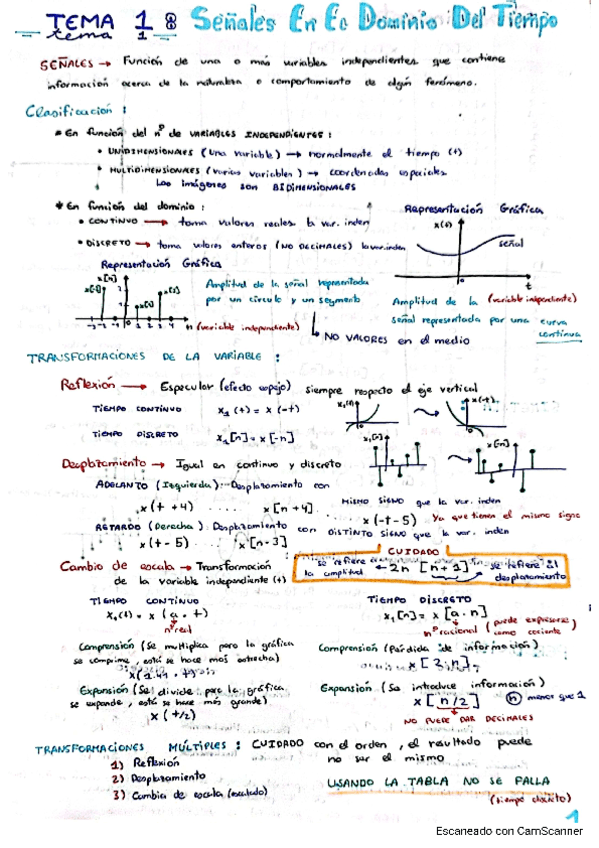 TEMA 1 : Señales En El Dominio Del Tiempo
tema 1
SEÑALES → Función de una o más variables independientes que contiene
información acerca de la naturaleza o comportamiento de algún fenómeno.
Clasificación :
* En función del nº de VARIABLES INDEPENDIENTES :
• UNIDIMENSIONALES (Una variable) → normalmente el tiempo (t)
• MULTIDIMENSIONALES (varias variables) → coordenadas espaciales
Las imágenes son BIDIMENSIONALES
* En función del dominio :
• CONTINUO → toma valores reales la var. inden
• DISCRETO → toma valores enteros (NO DECIMALES) la var. inden
Representación Gráfica
x(t)
señal
t
0
Representación Gráfica
x[n]
-3 -2 -1 0 1 2 3 4 n (variable independiente)
Amplitud de la señal representada
por un círculo y un segmento
NO VALORES en el medio
Amplitud de la (variable independiente)
señal representada por una curva
continua
TRANSFORMACIONES DE LA VARIABLE :
Reflexión → Especular (efecto espejo) siempre respecto el eje vertical
TIEMPO CONTINUO x₁(t) = x(-t)
x₁(t) x(-t)
TIEMPO DISCRETO x₁[n] = x[-n]
x₁[n] x[n]
Desplazamiento → Igual en continuo y discreto
ADELANTO (Izquierda): Desplazamiento con MISMO SIGNO que la var. inden
x(t + 4) x[n + 4] x(-t - 5) Ya que tienen el mismo signo
RETARDO (Derecha): Desplazamiento con DISTINTO SIGNO que la var. inden
x(t - 5) x[n - 3]
CUIDADO
se refiere la amplitud ← 2n [n + 1] → se refiere al desplazamiento
Cambio de escala → Transformación
de la variable independiente (t)
TIEMPO CONTINUO
x₁(t) = x(a · t)
nº real
Comprensión (Se multiplica para la gráfica
se comprime, esta se hace más estrecha)
Expansión (Se divide para la gráfica
se expande, esta se hace más grande)
x(t/2)
TIEMPO DISCRETO
x₁[n] = x[a · n]
nº racional (puede expresarse como cociente)
Comprensión (Pérdida de información)
x[3·n]
Expansión (Se introduce información)
x[n/2] (n) menor que 1
NO PUEDE DAR DECIMALES
TRANSFORMACIONES MÚLTIPLES : CUIDADO con el orden, el resultado puede
no ser el mismo
1) Reflexión
2) Desplazamiento
3) Cambio de escala (escalado)
USANDO LA TABLA NO SE FALLA
(tiempo discreto)
1
Escaneado con CamScanner